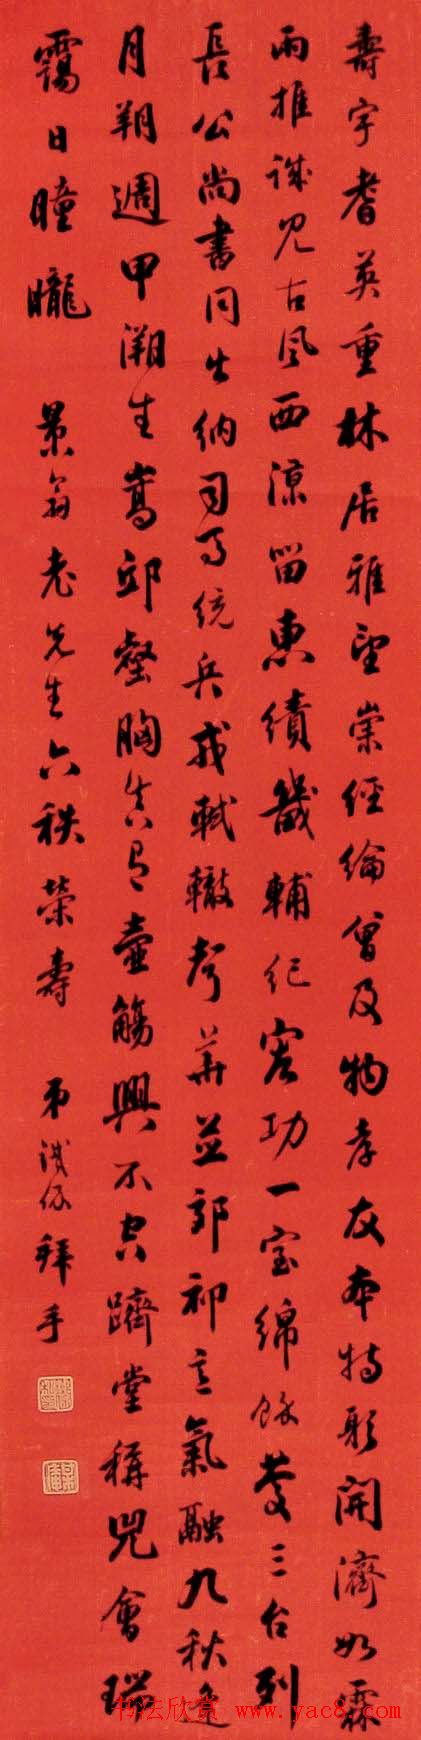 壽宇耆英重林居雅望崇經綸曾及物孝友本特彰開濟如霖
雨推誠見古風西涼留惠績畿輔紀宏功一室綿餘慶三台列
長公尚書同出納司馬統兵戎軾轍聲華並郊祁意氣融九秋逢
月朔週甲溯生嵩邱壑胸真有壺觴興不空躋堂稱兕會瑞
靄日曈曨
景翁老先生六秩榮壽
弟 拜手
书法欣赏 www.yac8.com